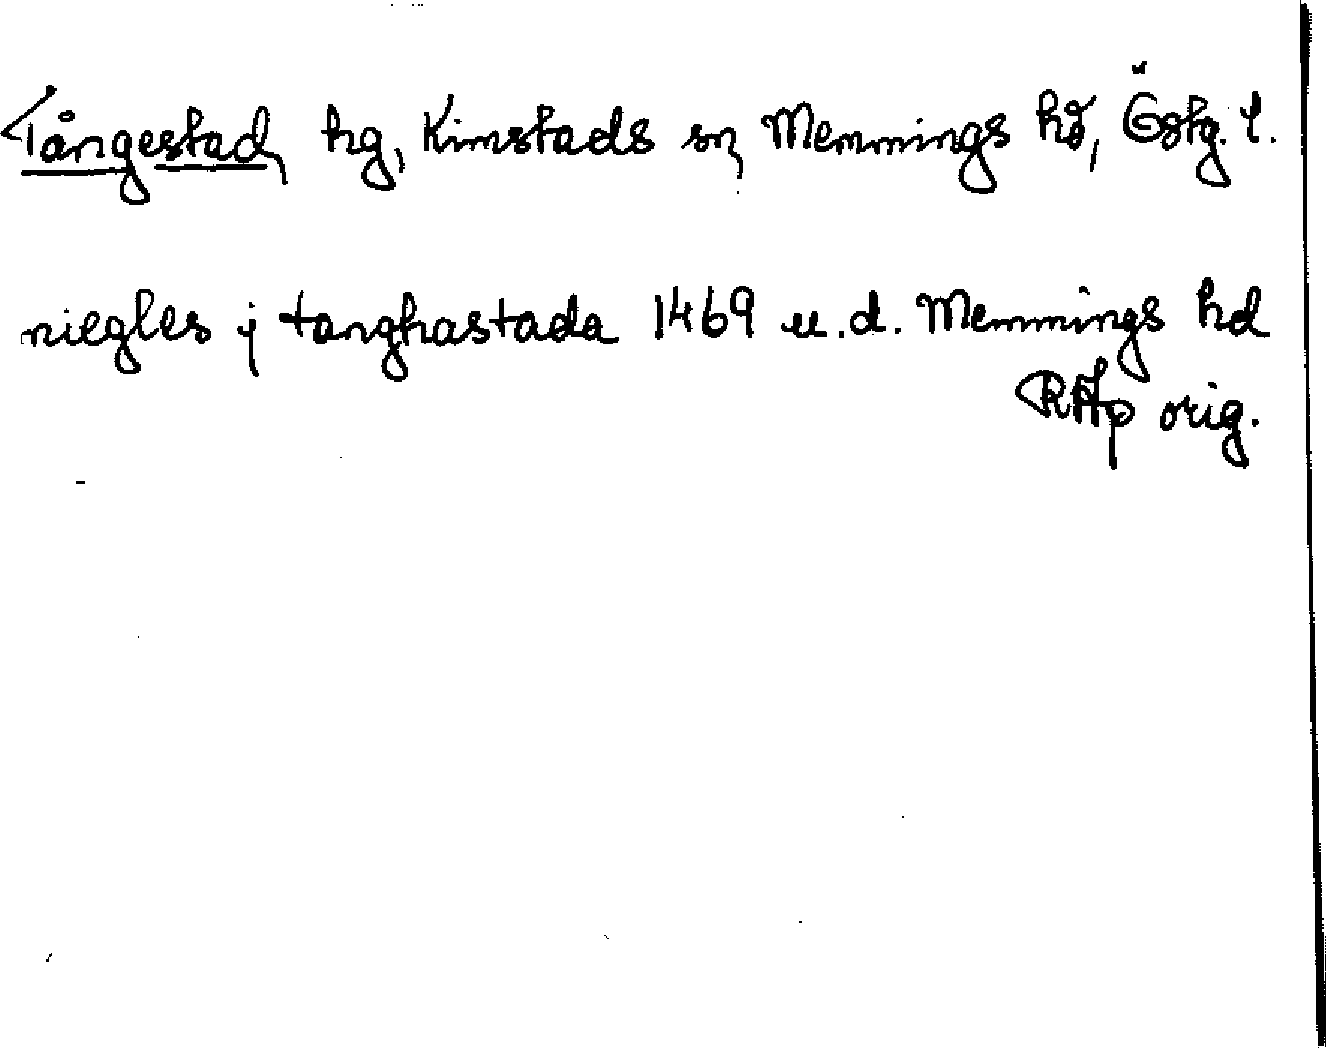 Tångestad, hg, Kimstads sn, Memmings hd, Östg. l.
niegles j tanghastada 1469 u.d. Memmings hd
RAp orig.